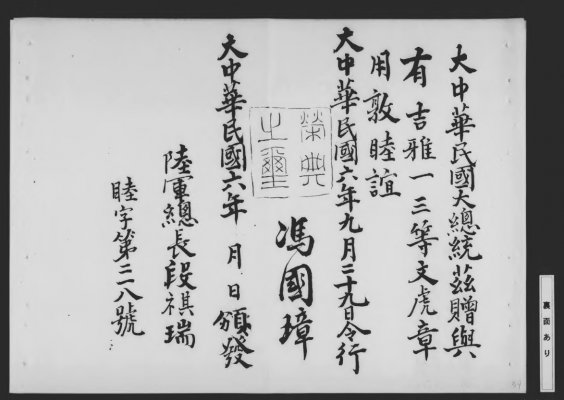 大中華民國大總統茲贈與
有吉雅一三等文虎章
用敦睦誼
大中華民國六年九月二十九日令行
榮典
之璽
馮國璋
大中華民國六年 月 日頒發
陸軍總長段祺瑞
睦字第三二八號
裏面あり